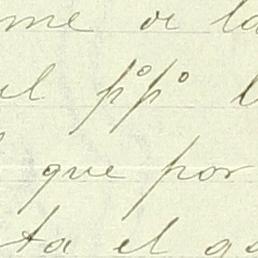 me de la
el pºpº
que por
ta el ga